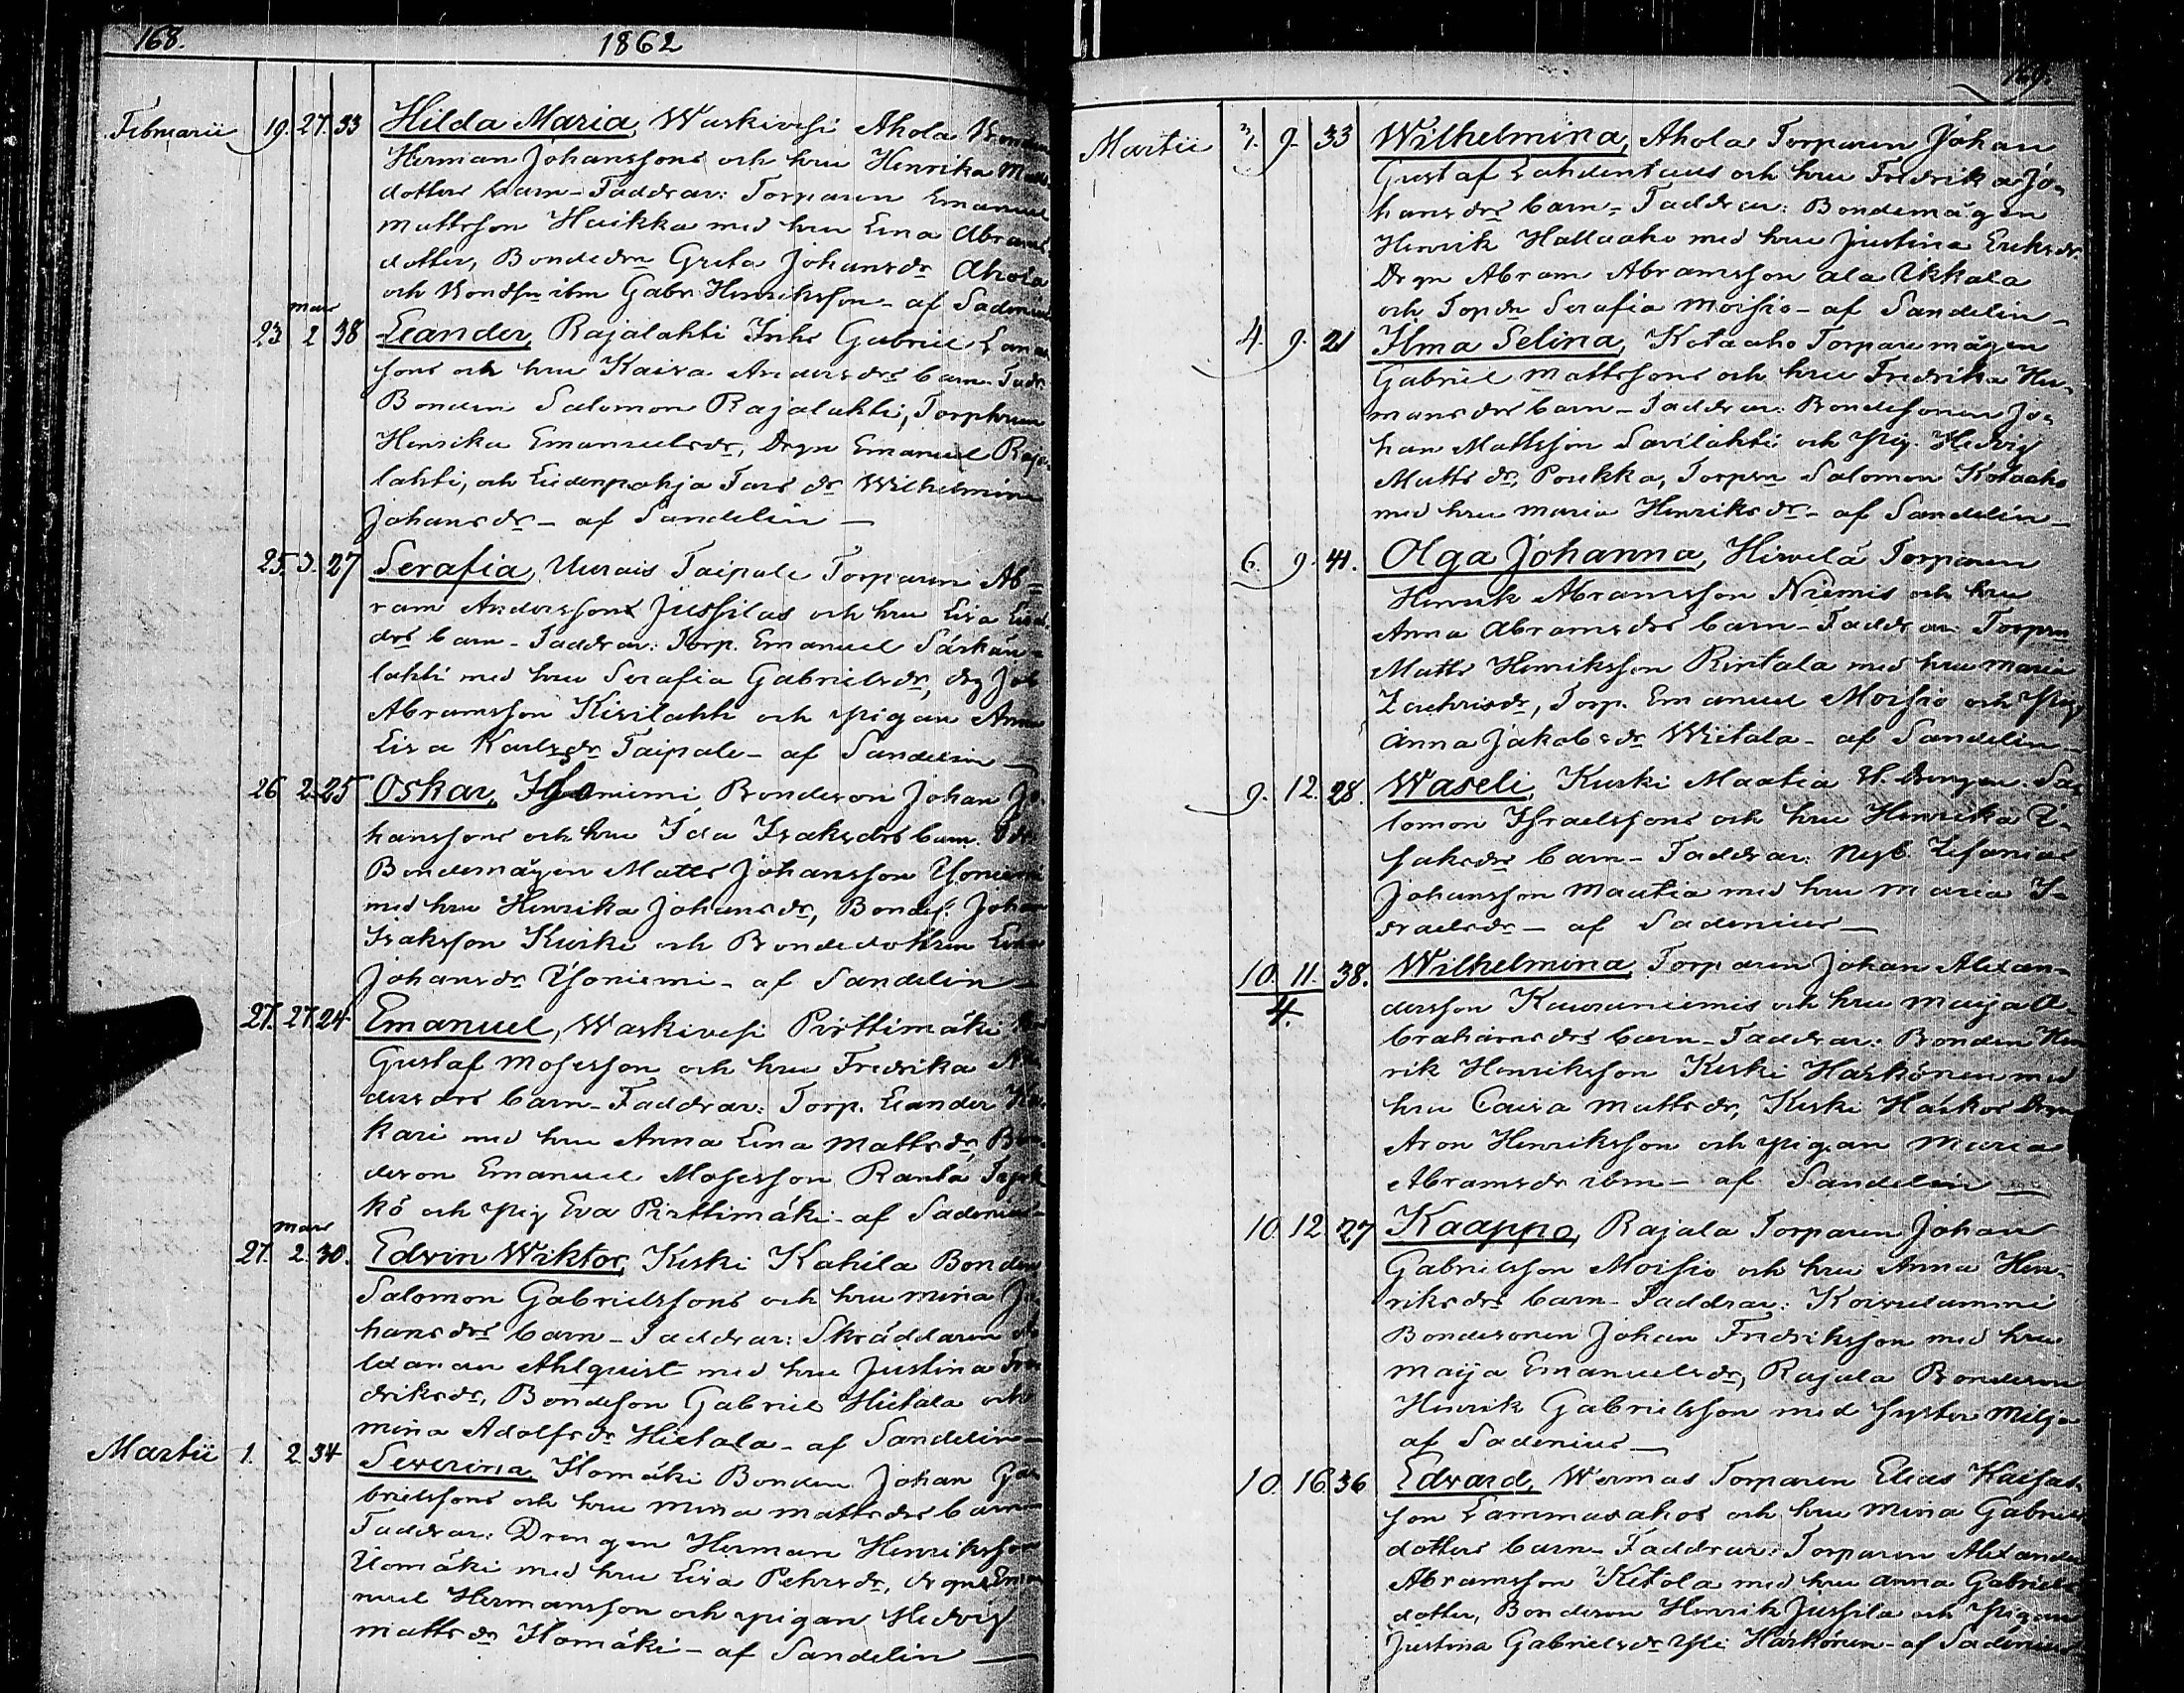 168.
1862
Februarii 19. 27. 33 Hilda Maria, Waskivesi Ahola Bonden
Herman Johanssons och hru Henrika Matts
dotters barn - Faddrar: Torparen Emanuel
Mattsson Huikka med hru Lena Abrams
dotter, Bondedrn Greta Johansdr Ahola
och Bondsn ibm Gabr. Henriksson - af Sadenius
23 mars 2 38 Leander, Rajalahti Inhs Gabriel
sons och hru Kaisa Andersdrs barn. Fadr.
Bonden Salomon Rajalahti, Torphrun
Henrika Emanuelsdr, Drgn Emanuel Raja
lahti, och Liidenpohja Tors dr Wilhelmina
Johansdr - af Sandelin -
25. 3. 27 Serafia, Uurais Taipale Torparen Ab-
ram Anderssons Jussilas och hru Lisa
drs barn - Faddrar: Torp. Emanuel Särkän-
lahti med hru Serafia Gabrielsdr, drg Joh
Abramsson Kivilahti och pigan Anna
Lisa Karlsdr Taipale - af Sandelin -
26 2. 25 Oskar, Isoniemi Bondeson Johan Jo
hanssons och hru Ida Isaksdrs barn.
Bondemågen Matts Johansson Ysoniemi
med hru Henrika Johansdr, Bondes. Johan
Isaksson Kurki och Bondedottren Lena
Johansdr Ysoniemi - af Sandelin -
27. 27. 24. Emanuel, Waskivesi Pirttimäki
Gustaf Mosesson och hru Fredrika
dersdrs barn - Faddrar: Torp. Leander
kari med hru Anna Lena Mattsdr, Bon
deson Emanuel Mosesson Ranta
kö och pig Eva Pirttimäki - af Sadenius -
27. mars 2. 30. Edvin Wiktor, Keski Kahila Bonden
Salomon Gabrielssons och hru Mina Jo
hansdrs barn - Faddrar: Skräddaren
lexander Ahlquist med hru Justina Fre
driksdr, Bondeson Gabriel Hietala och
Mina Adolfsdr Hietala - af Sandelin -
Martii 1. 2 34 Severina, Ylomäki Bonden Johan Ga
brielssons och hru Mina Mattsdrs barn
Faddrar: Drengen Herman Henriksson
Ulomäki med hru Lisa Pehrsdr, drgn Ema
nuel Hermansson och pigan Hedvig
Mattsdr Ylomäki - af Sandelin -
169.
Martii 3. 9. 33 Wilhelmina, Ahola Torparen Johan
Gustaf Lahdentaus och hru Fredrika Jo-
hansdrs barn - Faddrar: Bondemågen
Henrik Hallaaho med hru Justina Eriksdr
Drgn Abram Abramsson ala Ukkola
och Topdr Serafia Moisio - af Sandelin -
4. 9. 21 Ilma Selina, Kotaaho Torparemågen
Gabriel Mattssons och hru Fredrika Her-
mansdrs barn - Faddrar: Bondesonen Jo-
han Mattsson Savilahti och Pig. Hedvig
Matts dr, Poukka, Torprn Salomon Kotaaho
med hru Maria Henriksdr - af Sandelin -
6. 9. 41. Olga Johanna, Hirvelä Torparen
Henrik Abramsson Niemis och hru
Anna Abramsdrs barn - Faddrar: Torprn
Matts Henriksson Rintala med hru Maria
Zachrisdr, Torp. Emanuel Moisio och Pig.
Anna Jakobsdr Wiitala - af Sandelin -
9. 12. 28. Waseli, Kurki Maatia H. Drengen Sa-
lomon Israelssons och hru Henrika I-
saksdrs barn - Faddrar: Nyb. Zefanias
Johansson Maatia med hru Maria I-
sraelsdr - af Sadenius -
10. 11. 38. Wilhelmina, Torparen Johan Alexan-
4.
dersson Kauraniemis och hru Maija A-
brahamsdrs barn - Faddrar: Bonden Hen
rik Henriksson Keski Härkönen med
hru Caisa Mattsdr, Keski Härkös Drgn
Aron Henriksson och pigan Maria
Abramsdr ibm - af Sandelin -
10. 12. 27 Kaappo, Rajala Torparen Johan
Gabrielsson Moisio och hru Anna Hen-
riksdrs barn - Faddrar: Koivulammi
Bondesonen Johan Fredriksson med hru
Maija Emanuelsdr, Rajala Bondeson
Henrik Gabrielsson med syster Milja
af Sadenius -
10. 16. 36 Edvard, Wermas Torparen Elias Kaisas-
son Lammasahos och hru Mina Gabriels
dotters barn - Faddrar: Torparen Alexander
Abramsson Ketola med hru Anna Gabriels
dotter, Bondeson Henrik Jussila och Pigan
Justina Gabrielsdr Yli Härkönen - af Sadenius